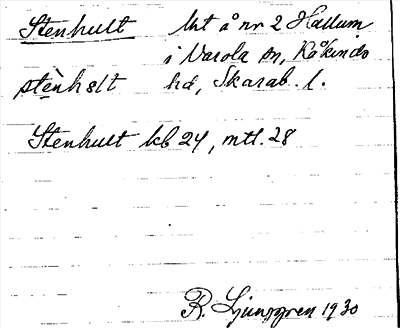 Stenhult lht å nr 2 Hallum
i Varola sn, Kåkinds
stènhs̥lt hd, Skarab. l.
Stenhult kb 24, mtl. 28
R. Ljunggren 1930